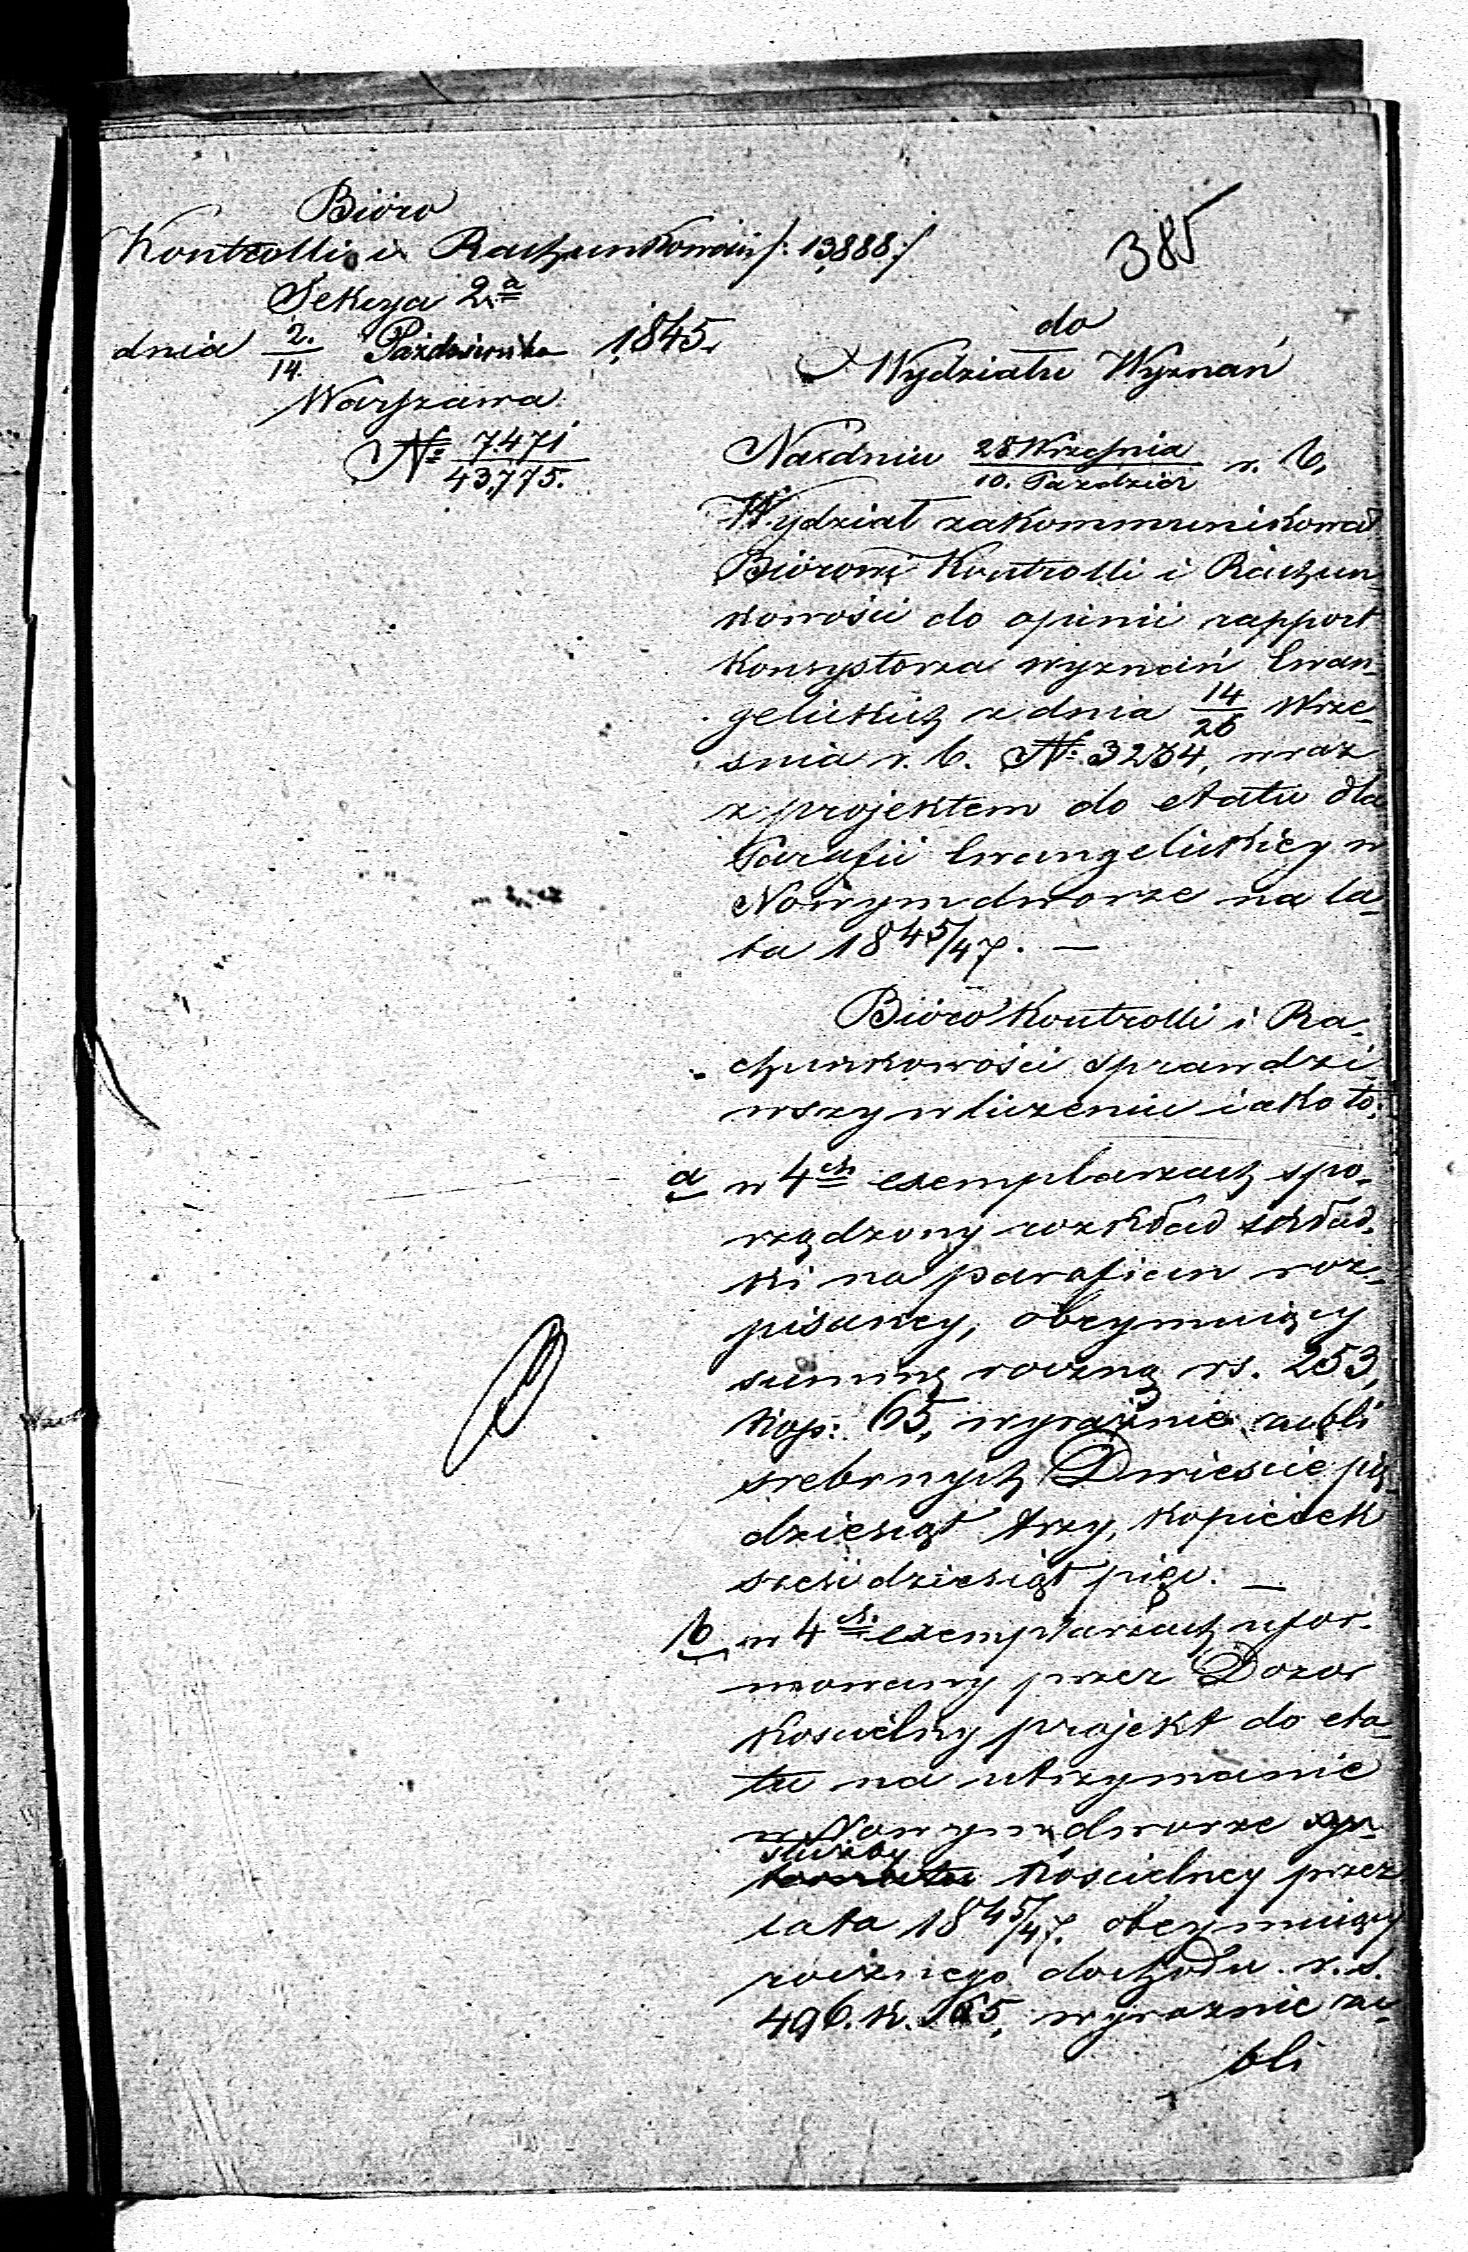 Biöro
Kontrolli i Rachunkowości /: 13,888 :/
Sekcya 2a
dnia 2./14. Pazdziernika 1845.
Warszawa
№ 7471/43,775.
385
do
Wydziału Wyznań
Na dniu 28 Września/10. Pazdzier r. b.
Wydział zakommunikował
Biórowi Kontrolli i Rachun-
kowości do opinii rapport
Konsystorza wyznań Ewan-
gelickich z dnia 14/26 Wrze-
snia r. b. № 3234, wraz
z projektem do etatu dla
Parafii Ewangelickiey w
Nowymdworze na la-
ta 1845/47. —
Biöro Kontrolli i Ra-
chunkowości sprawdzi-
wszy w liczeniu iako to:
a w 4ch exemplarzach spo-
rządzony rozkład skład-
ki na parafian roz-
pisaney, obeymuiący
summę roczną rs. 253,
kop: 65, wyraźnie rubli
srebrnych Dwieście pię-
dziesiąt trzy, kopieiek
sześćdziesiąt pięć. —
b w 4ch exemplarzach ufor-
mowany przez Dozor
Koscielny projekt do eta-
tu na utrzymanie
w Nowymdworze
służby
Koscielney przez
lata 1845/47. obeymuiący
rocznego dochodu r. s.
496. k. 65, wyraznie ru-
bli